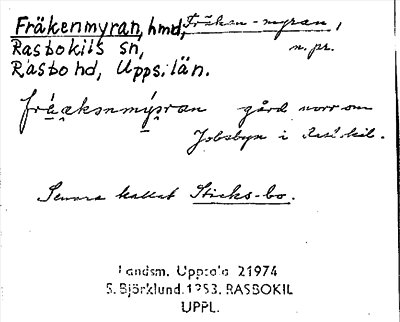 Fräkenmyran, hmd, Fräken-myran,
Rasbokils sn, n. pr.
Rasbo hd, Upps. län.
gård norr om
Jobsbyn i Rasbokil.
Senare kallat Sticks-bo.
Landsm. Uppsala 21974
S. Björklund. 1953. RASBOKIL
UPPL.